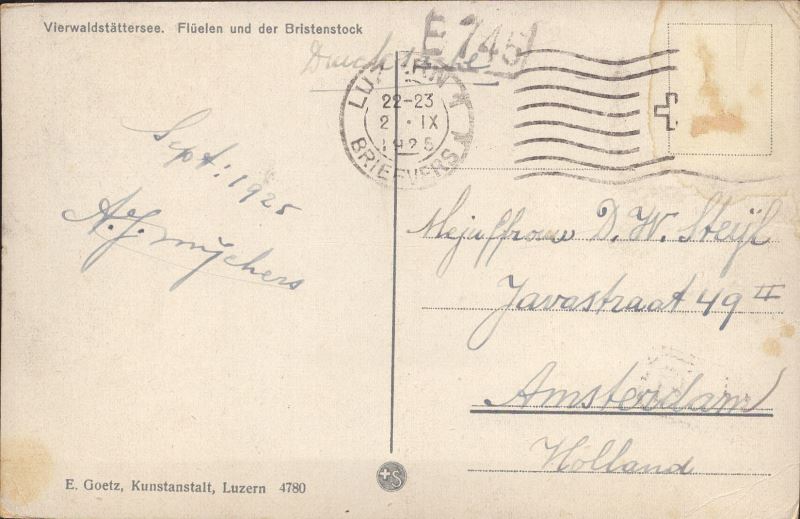 Vierwaldstättersee. Flüelen und der Bristenstock
E 745
Drucksache
LUZERN 1
22-23
2. IX
1925
BRIEFVERS.
Sept: 1925
Mejuffrouw D. W. Steijl
Javastraat 49 II
Amsterdam
Holland
E. Goetz, Kunstanstalt, Luzern 4780
S